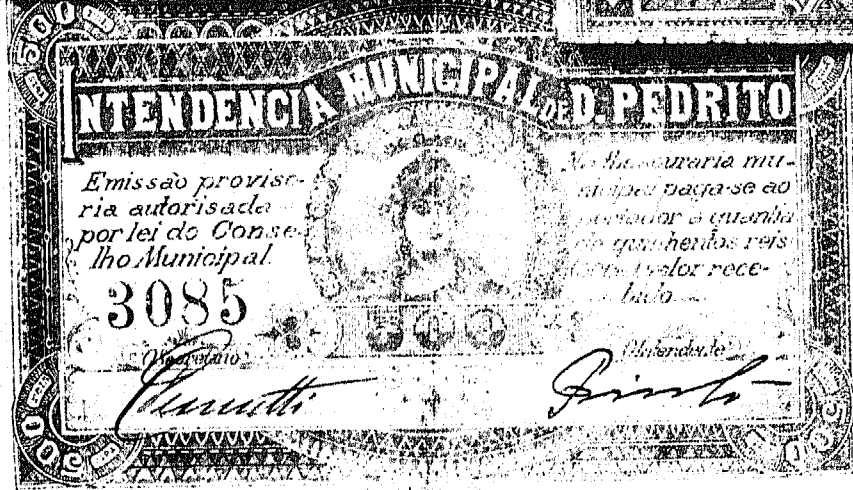 500
INTENDENCIA MUNICIPAL DE D. PEDRITO
Emissão proviso-
ria autorisada
por lei do Conse-
lho Municipal
3085
Na thesouraria mu-
nicipal paga-se ao
portador a quantia
de quinhentos reis
valor rece-
bido
500
O Secretario
O Intendente
500
500